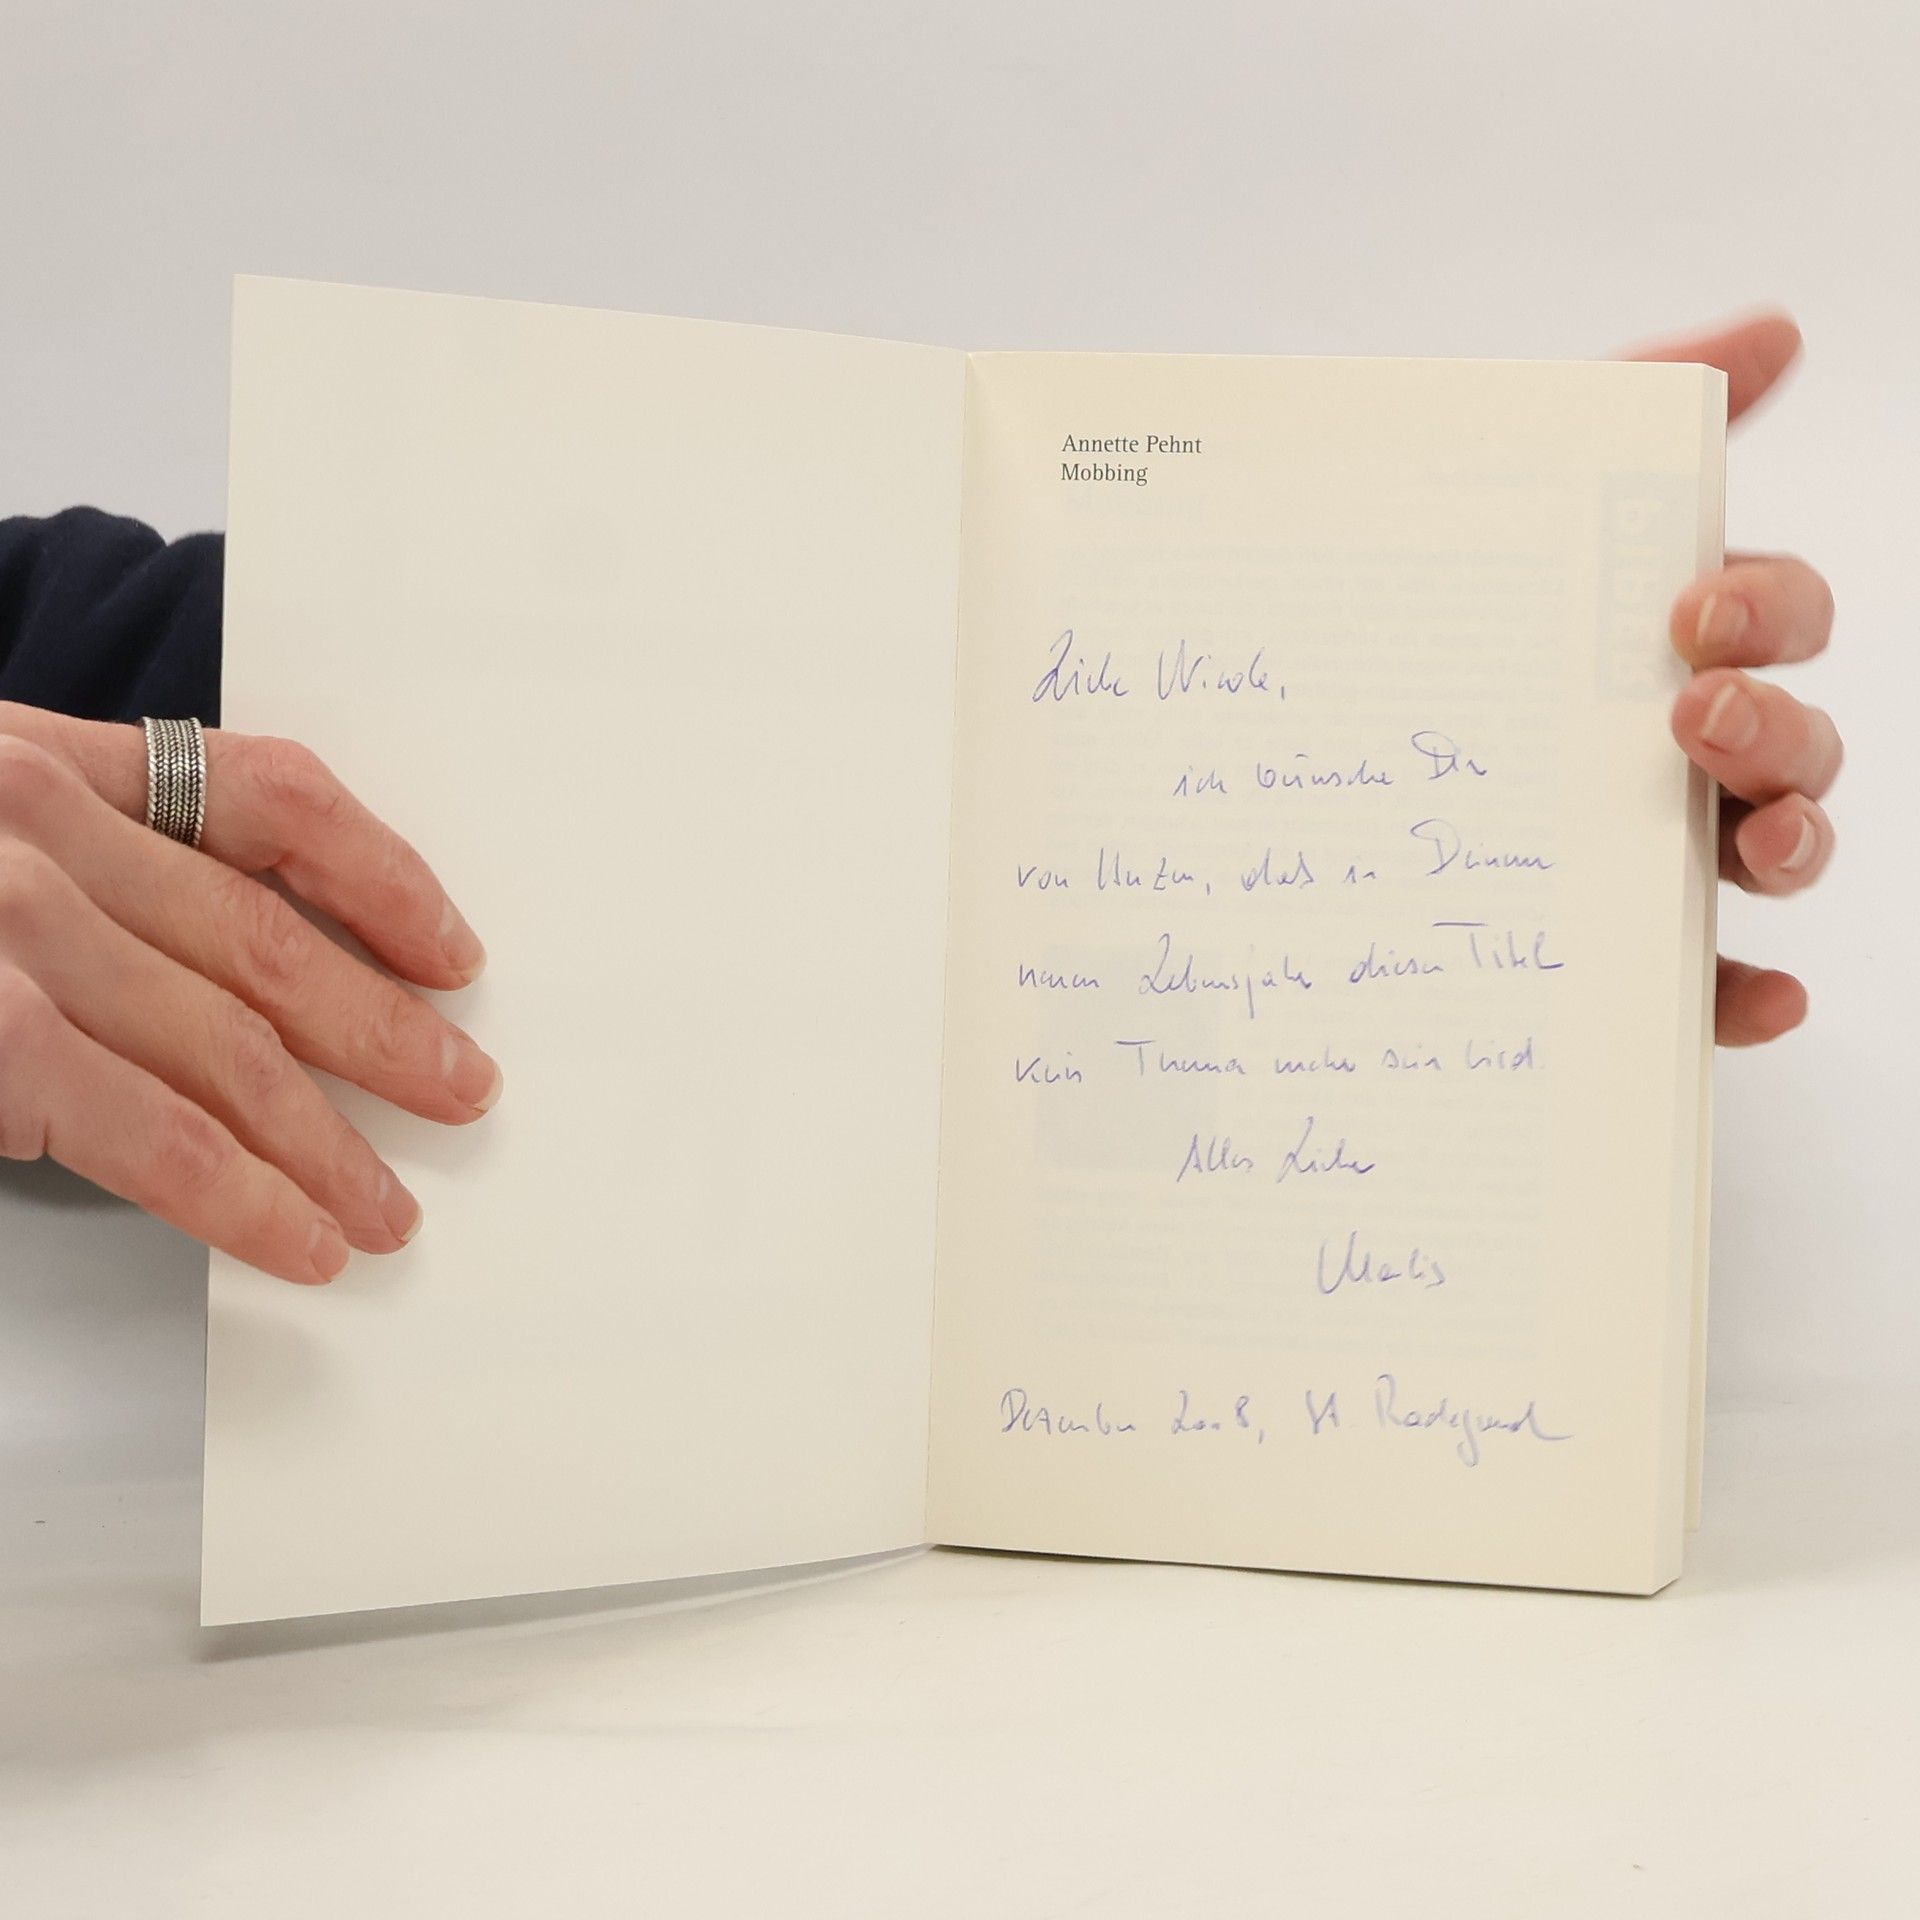 Annette Pehnt
Mobbing
Liebe Nicole,
ich wünsche Dir
von Herzen, daß in Deinem
neuen Lebensjahr dieser Titel
kein Thema mehr sein wird.
Alles Liebe
Marlis
Dezember 2008, St. Radegund